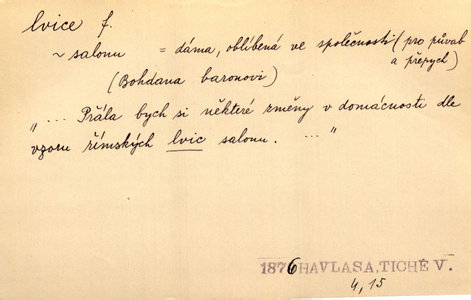 lvice f.
~ salonu = dáma, oblíbená ve společnosti (pro půvab
a přepych)
(Bohdana baronovi)
„ ... Přála bych si některé změny v domácnosti dle
vzoru římských lvic salonu. ... "
1876 HAVLASA, TICHÉ V.
4, 15